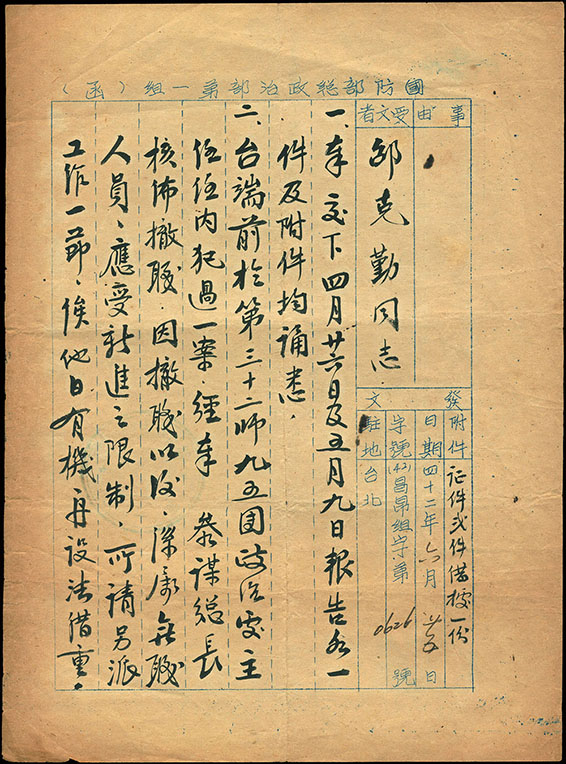 國防部總政治部第一組（函）
事由
受文者
邵克勤同志
發文
附件 証件弍件借據一份
日期 四十二年六月 日
字號 (42)昌昂組字第0626號
駐地 台北
一、奉交下四月廿六日及五月九日報告各一
件及附件均誦悉．
二、台端前於第三十二師九五團政治處主
任任內犯過一案．經奉 參謀總長
核佈撤職．因撤職以後．係屬無職
人員、應受新進之限制．所請另派
工作一節．俟他日有機再設法借重．